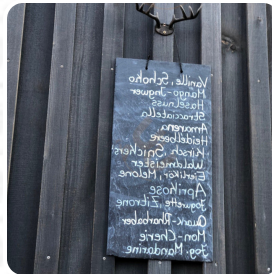 Vanille, Schoko
Mango-Ingwer
Haselnuss
Stracciatella
Amarena,
Heidelbeere
Kirsch, Snickers
Waldmeister
Eierlikör, Melone
Aprikose
Joguette, Zitrone
Quark-Rharbaber
Mon-Cherie
Jog. Mandarine